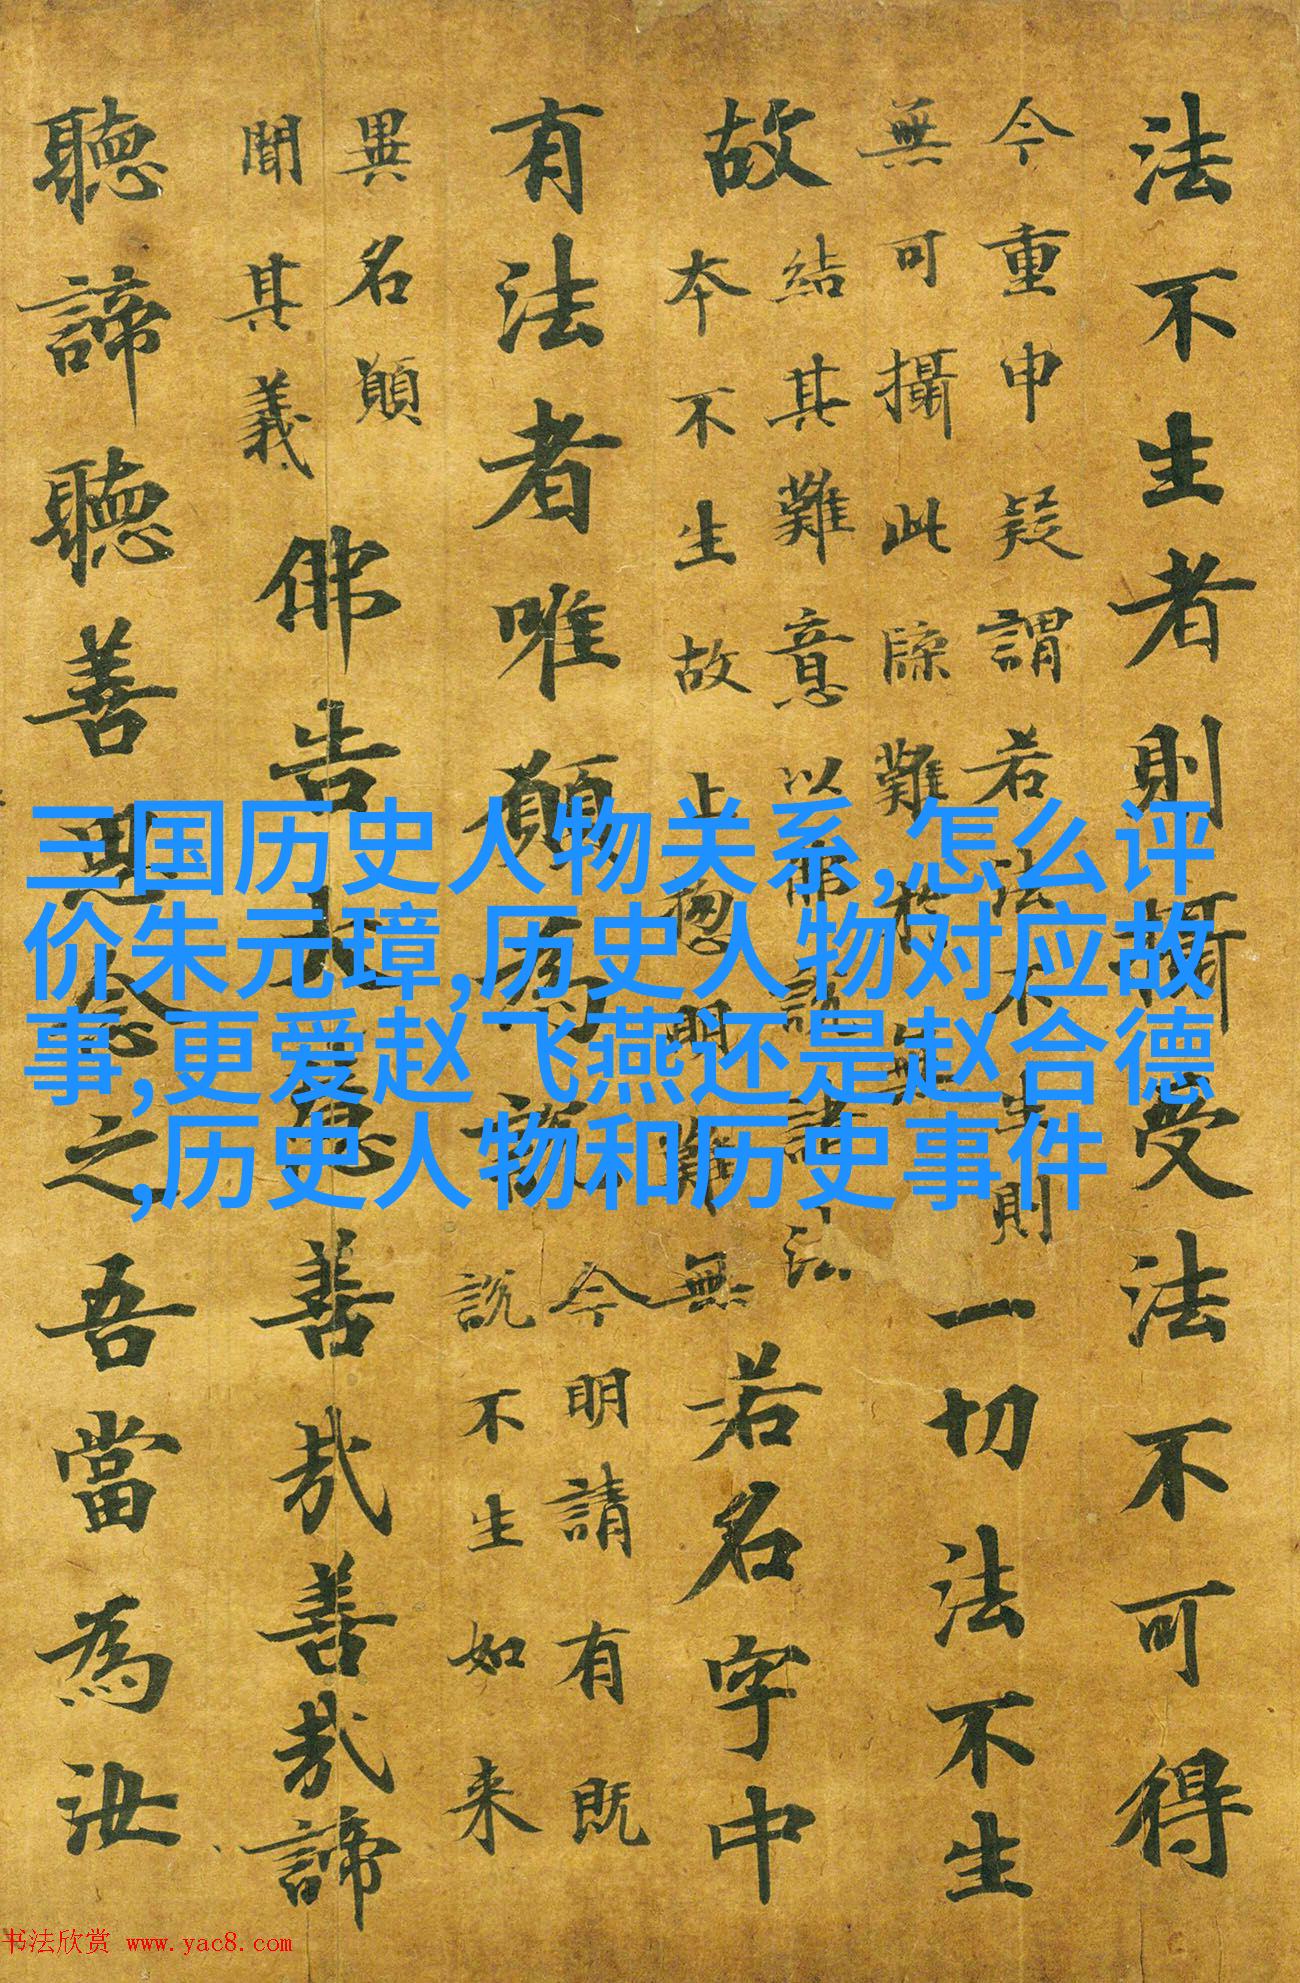 法不生者則攝受法不可得
今重申疑謂若法不生則
無可攝此牒難於無
一切法不生
故
結其難意以佛說諸法
本不生故上揔明難無
若名字中
有法者唯願為說
今明請有既
說不生如来
異名願
聞其義
佛告大慧善哉善哉諦
聽諦聽善思念之吾當為汝
三国历史人物关系,怎么评
价朱元璋,历史人物对应故
事,更爱赵飞燕还是赵合德
,历史人物和历史事件
书法欣赏 www.yac8.com